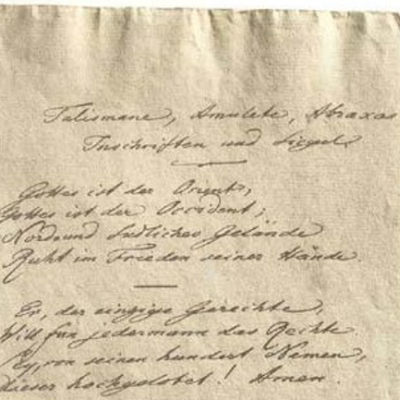 Talismane, Amulete, Abraxas
Inschriften und Siegel.
Gottes ist der Orient,
Gottes ist der Occident;
Nord und südliches Gelände
Ruht im Frieden seiner Hände.
Er, der einzige Gerechte,
Will für jedermann das Rechte.
Sey, von seinen hundert Namen,
dieser hochgelobet! Amen.